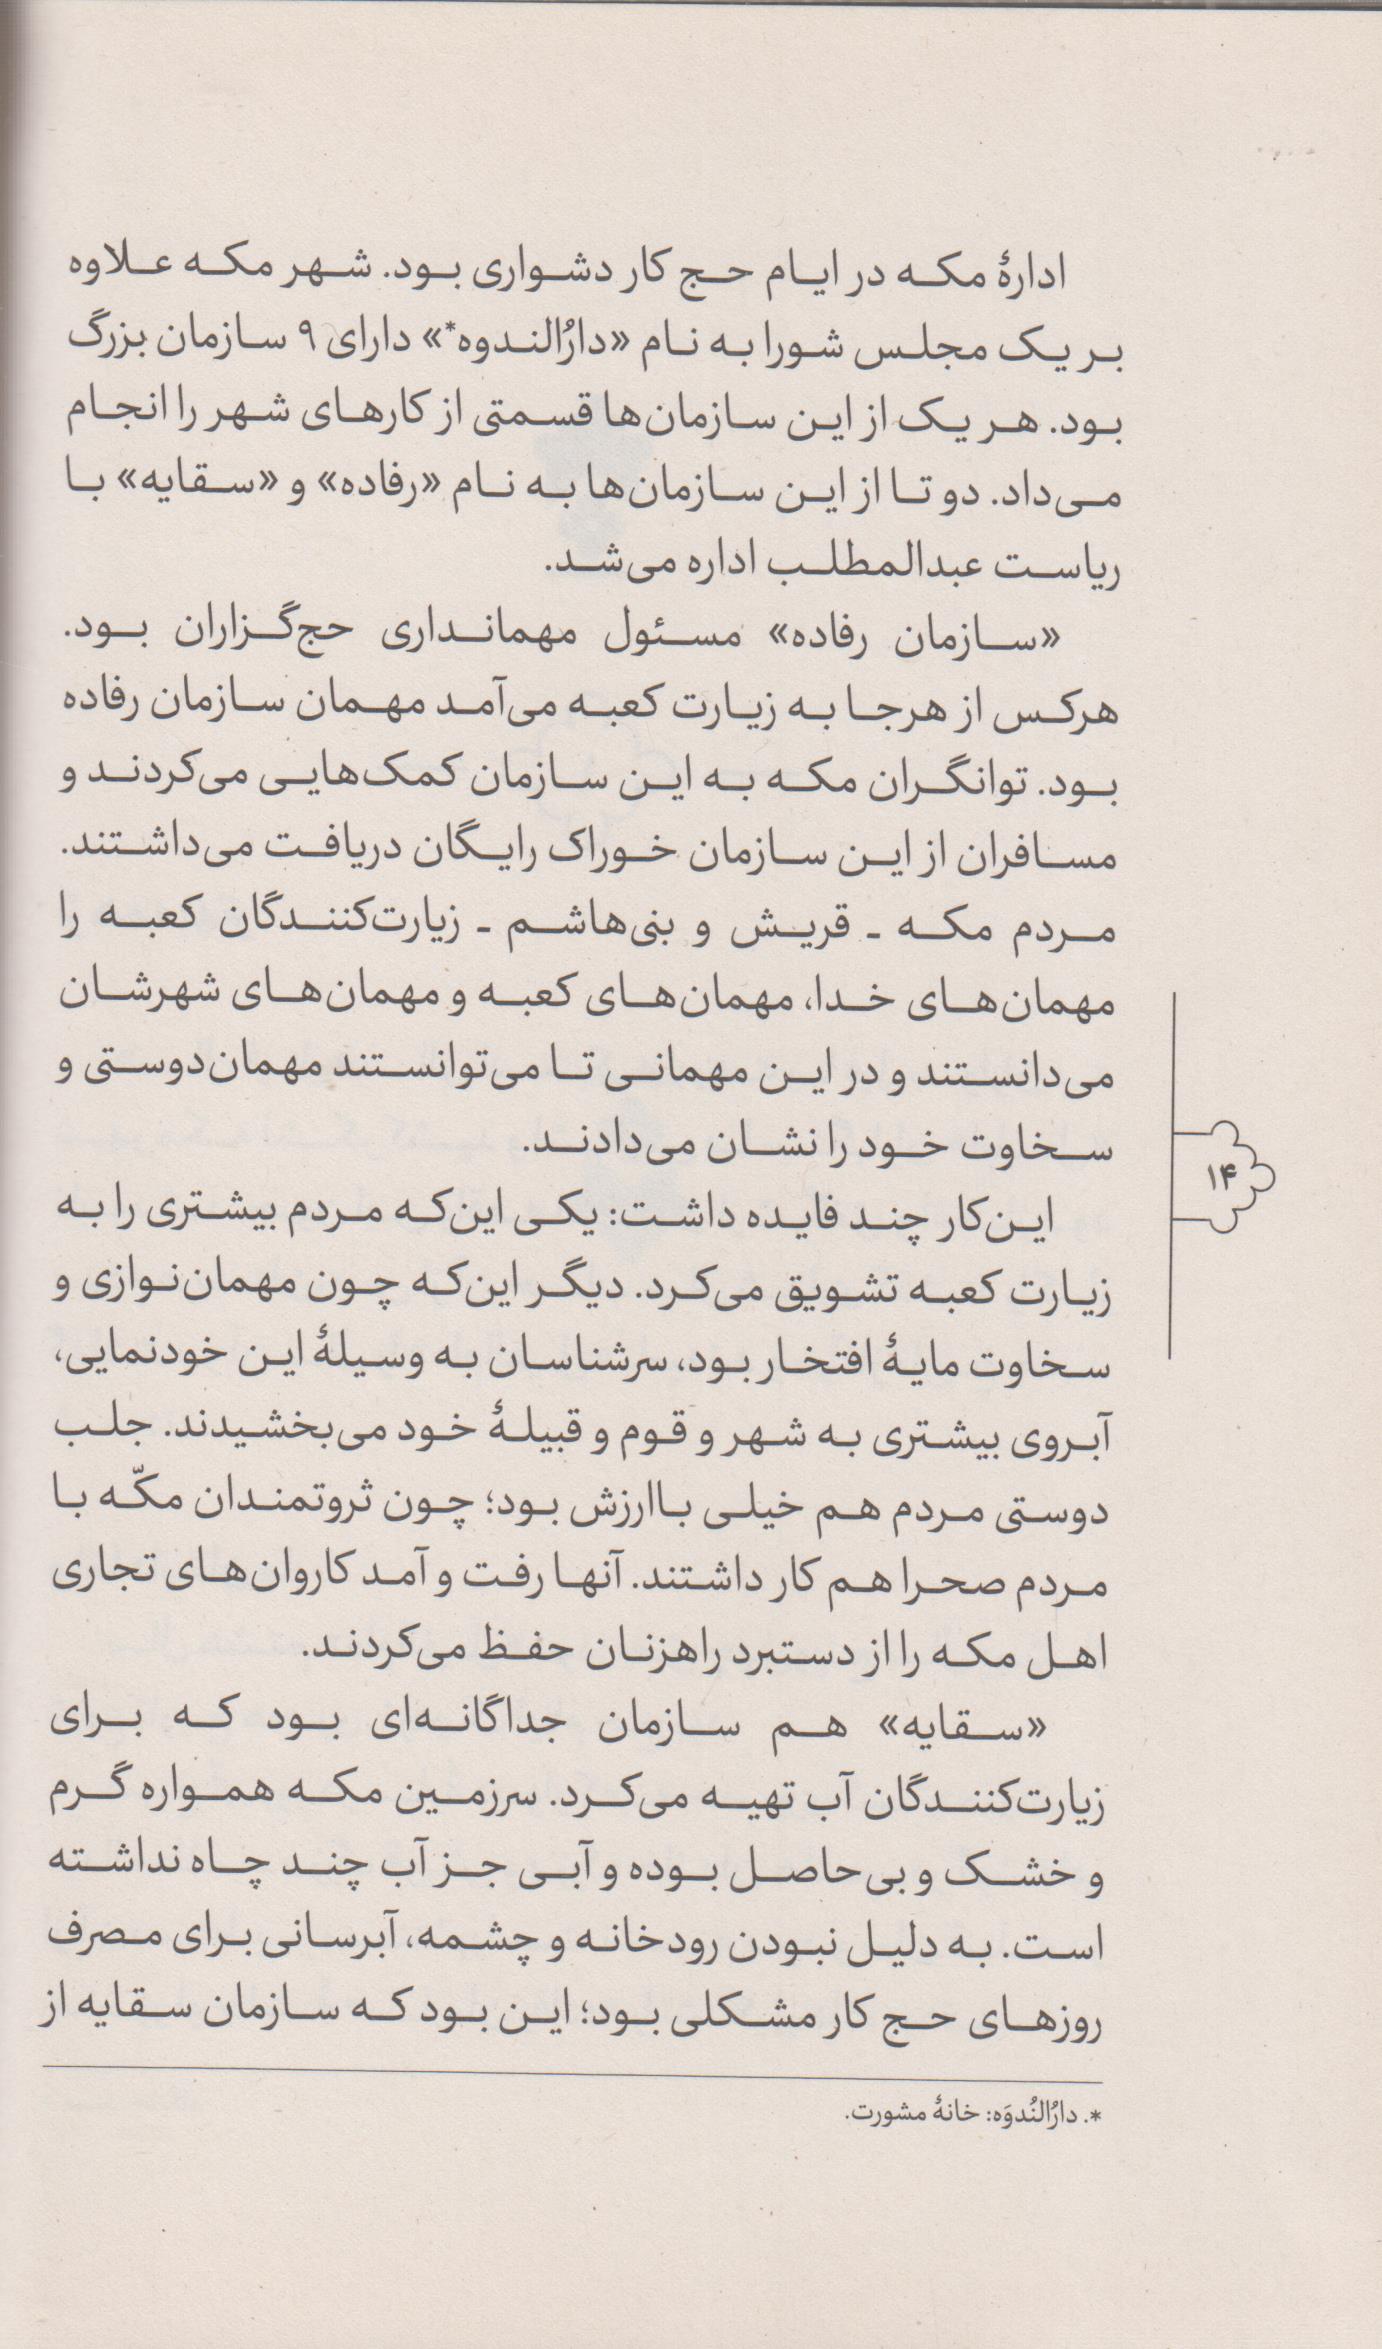 ادارهٔ مکه در ایام حج کار دشواری بود. شهر مکه علاوه
بر یک مجلس شورا به نام «دارُالندوه*» دارای ۹ سازمان بزرگ
بود. هر یک از این سازمان‌ها قسمتی از کارهای شهر را انجام
می‌داد. دو تا از این سازمان‌ها به نام «رفاده» و «سقایه» با
ریاست عبدالمطلب اداره می‌شد.
«سازمان رفاده» مسئول مهمانداری حج‌گزاران بود.
هرکس از هرجا به زیارت کعبه می‌آمد مهمان سازمان رفاده
بود. توانگران مکه به این سازمان کمک‌هایی می‌کردند و
مسافران از این سازمان خوراک رایگان دریافت می‌داشتند.
مردم مکه ـ قریش و بنی‌هاشم ـ زیارت‌کنندگان کعبه را
مهمان‌های خدا، مهمان‌های کعبه و مهمان‌های شهرشان
می‌دانستند و در این مهمانی تا می‌توانستند مهمان‌دوستی و
سخاوت خود را نشان می‌دادند.
این‌کار چند فایده داشت: یکی این‌که مردم بیشتری را به
زیارت کعبه تشویق می‌کرد. دیگر این‌که چون مهمان‌نوازی و
سخاوت مایهٔ افتخار بود، سرشناسان به وسیلهٔ این خودنمایی،
آبروی بیشتری به شهر و قوم و قبیلهٔ خود می‌بخشیدند. جلب
دوستی مردم هم خیلی باارزش بود؛ چون ثروتمندان مکّه با
مردم صحرا هم کار داشتند. آنها رفت و آمد کاروان‌های تجاری
اهل مکه را از دستبرد راهزنان حفظ می‌کردند.
«سقایه» هم سازمان جداگانه‌ای بود که برای
زیارت‌کنندگان آب تهیه می‌کرد. سرزمین مکه همواره گرم
و خشک و بی‌حاصل بوده و آبی جز آب چند چاه نداشته
است. به دلیل نبودن رودخانه و چشمه، آبرسانی برای مصرف
روزهای حج کار مشکلی بود؛ این بود که سازمان سقایه از
*. دارُالنُدوَه: خانهٔ مشورت.
۱۴